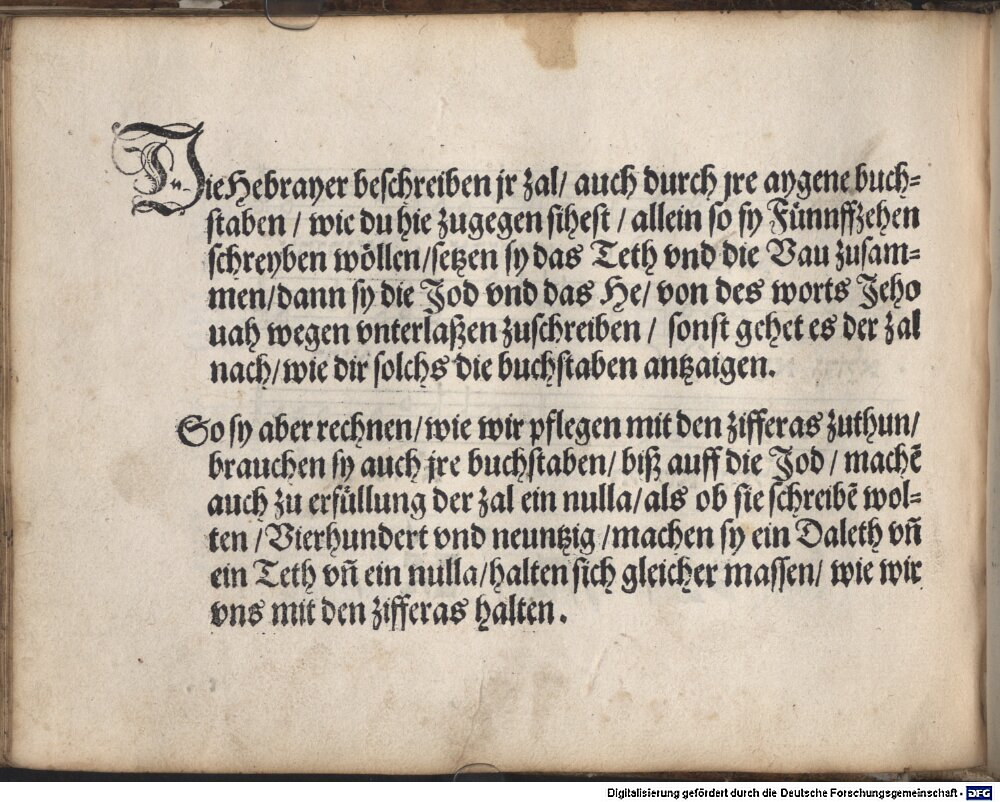 Die Hebrayer beschreiben jr zal/ auch durch jre aygene buch=
staben / wie du hie zugegen sihest / allein so sy Fünnffzehen
schreyben wöllen/setzen sy das Teth vnd die Vau zusam=
men/dann sy die Jod vnd das He/ von des worts Jeho
uah wegen vnterlaßen zuschreiben / sonst gehet es der zal
nach/wie dir solchs die buchstaben antzaigen.
So sy aber rechnen/wie wir pflegen mit den zifferas zuthun/
brauchen sy auch jre buchstaben/ biß auff die Jod / machē
auch zu erfüllung der zal ein nulla/als ob sie schreibē wol=
ten /Vierhundert vnd neuntzig /machen sy ein Daleth vñ
ein Teth vñ ein nulla/halten sich gleicher massen/ wie wir
vns mit den zifferas halten.
Digitalisierung gefördert durch die Deutsche Forschungsgemeinschaft - DFG